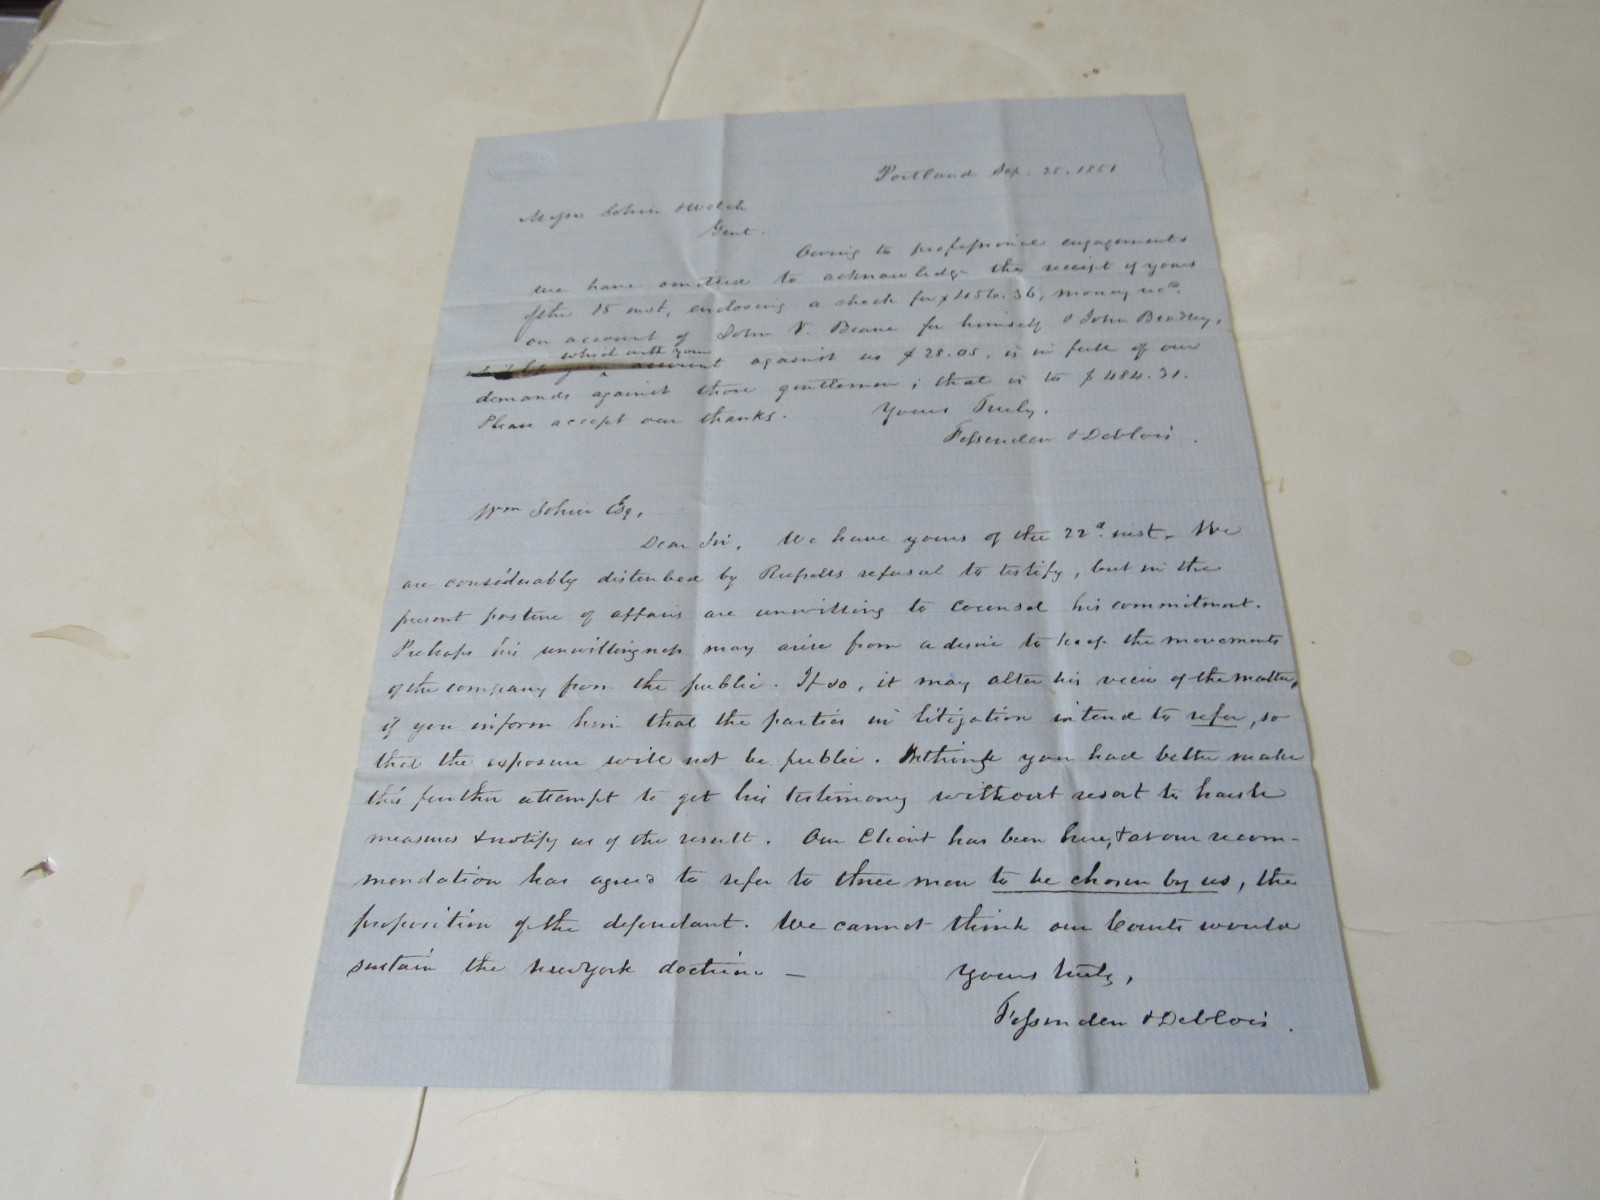 Portland Sep. 25, 1851
Messrs Sohier & Welch
Gent.
Owing to professional engagements
we have omitted to acknowledge the receipt of yours
of the 15 inst, enclosing a check for $456.36, money rec'd
on account of John V. Beane for himself & John Bradley,
which with your
account against us $28.05, is in full of our
demands against those gentlemen; that is to $484.31.
Please accept our thanks. Yours Truly,
Fessenden & Deblois.
Wm Sohier Esq,
Dear Sir, We have yours of the 22d inst. We
are considerably disturbed by refusal to testify, but in the
present posture of affairs are unwilling to counsel his commitment.
Perhaps his unwillingness may arise from a desire to keep the movements
of the company from the public. If so, it may alter his view of the matter,
if you inform him that the parties in litigation intend to refer, so
that the exposure will not be public. We think you had better make
this further attempt to get his testimony without resort to harsh
measures & notify us of the result. Our Client has been here, & at our recom-
mendation has agreed to refer to three men to be chosen by us, the
proposition of the defendant. We cannot think our Courts would
sustain the New York doctrine —
Yours truly,
Fessenden & Deblois.